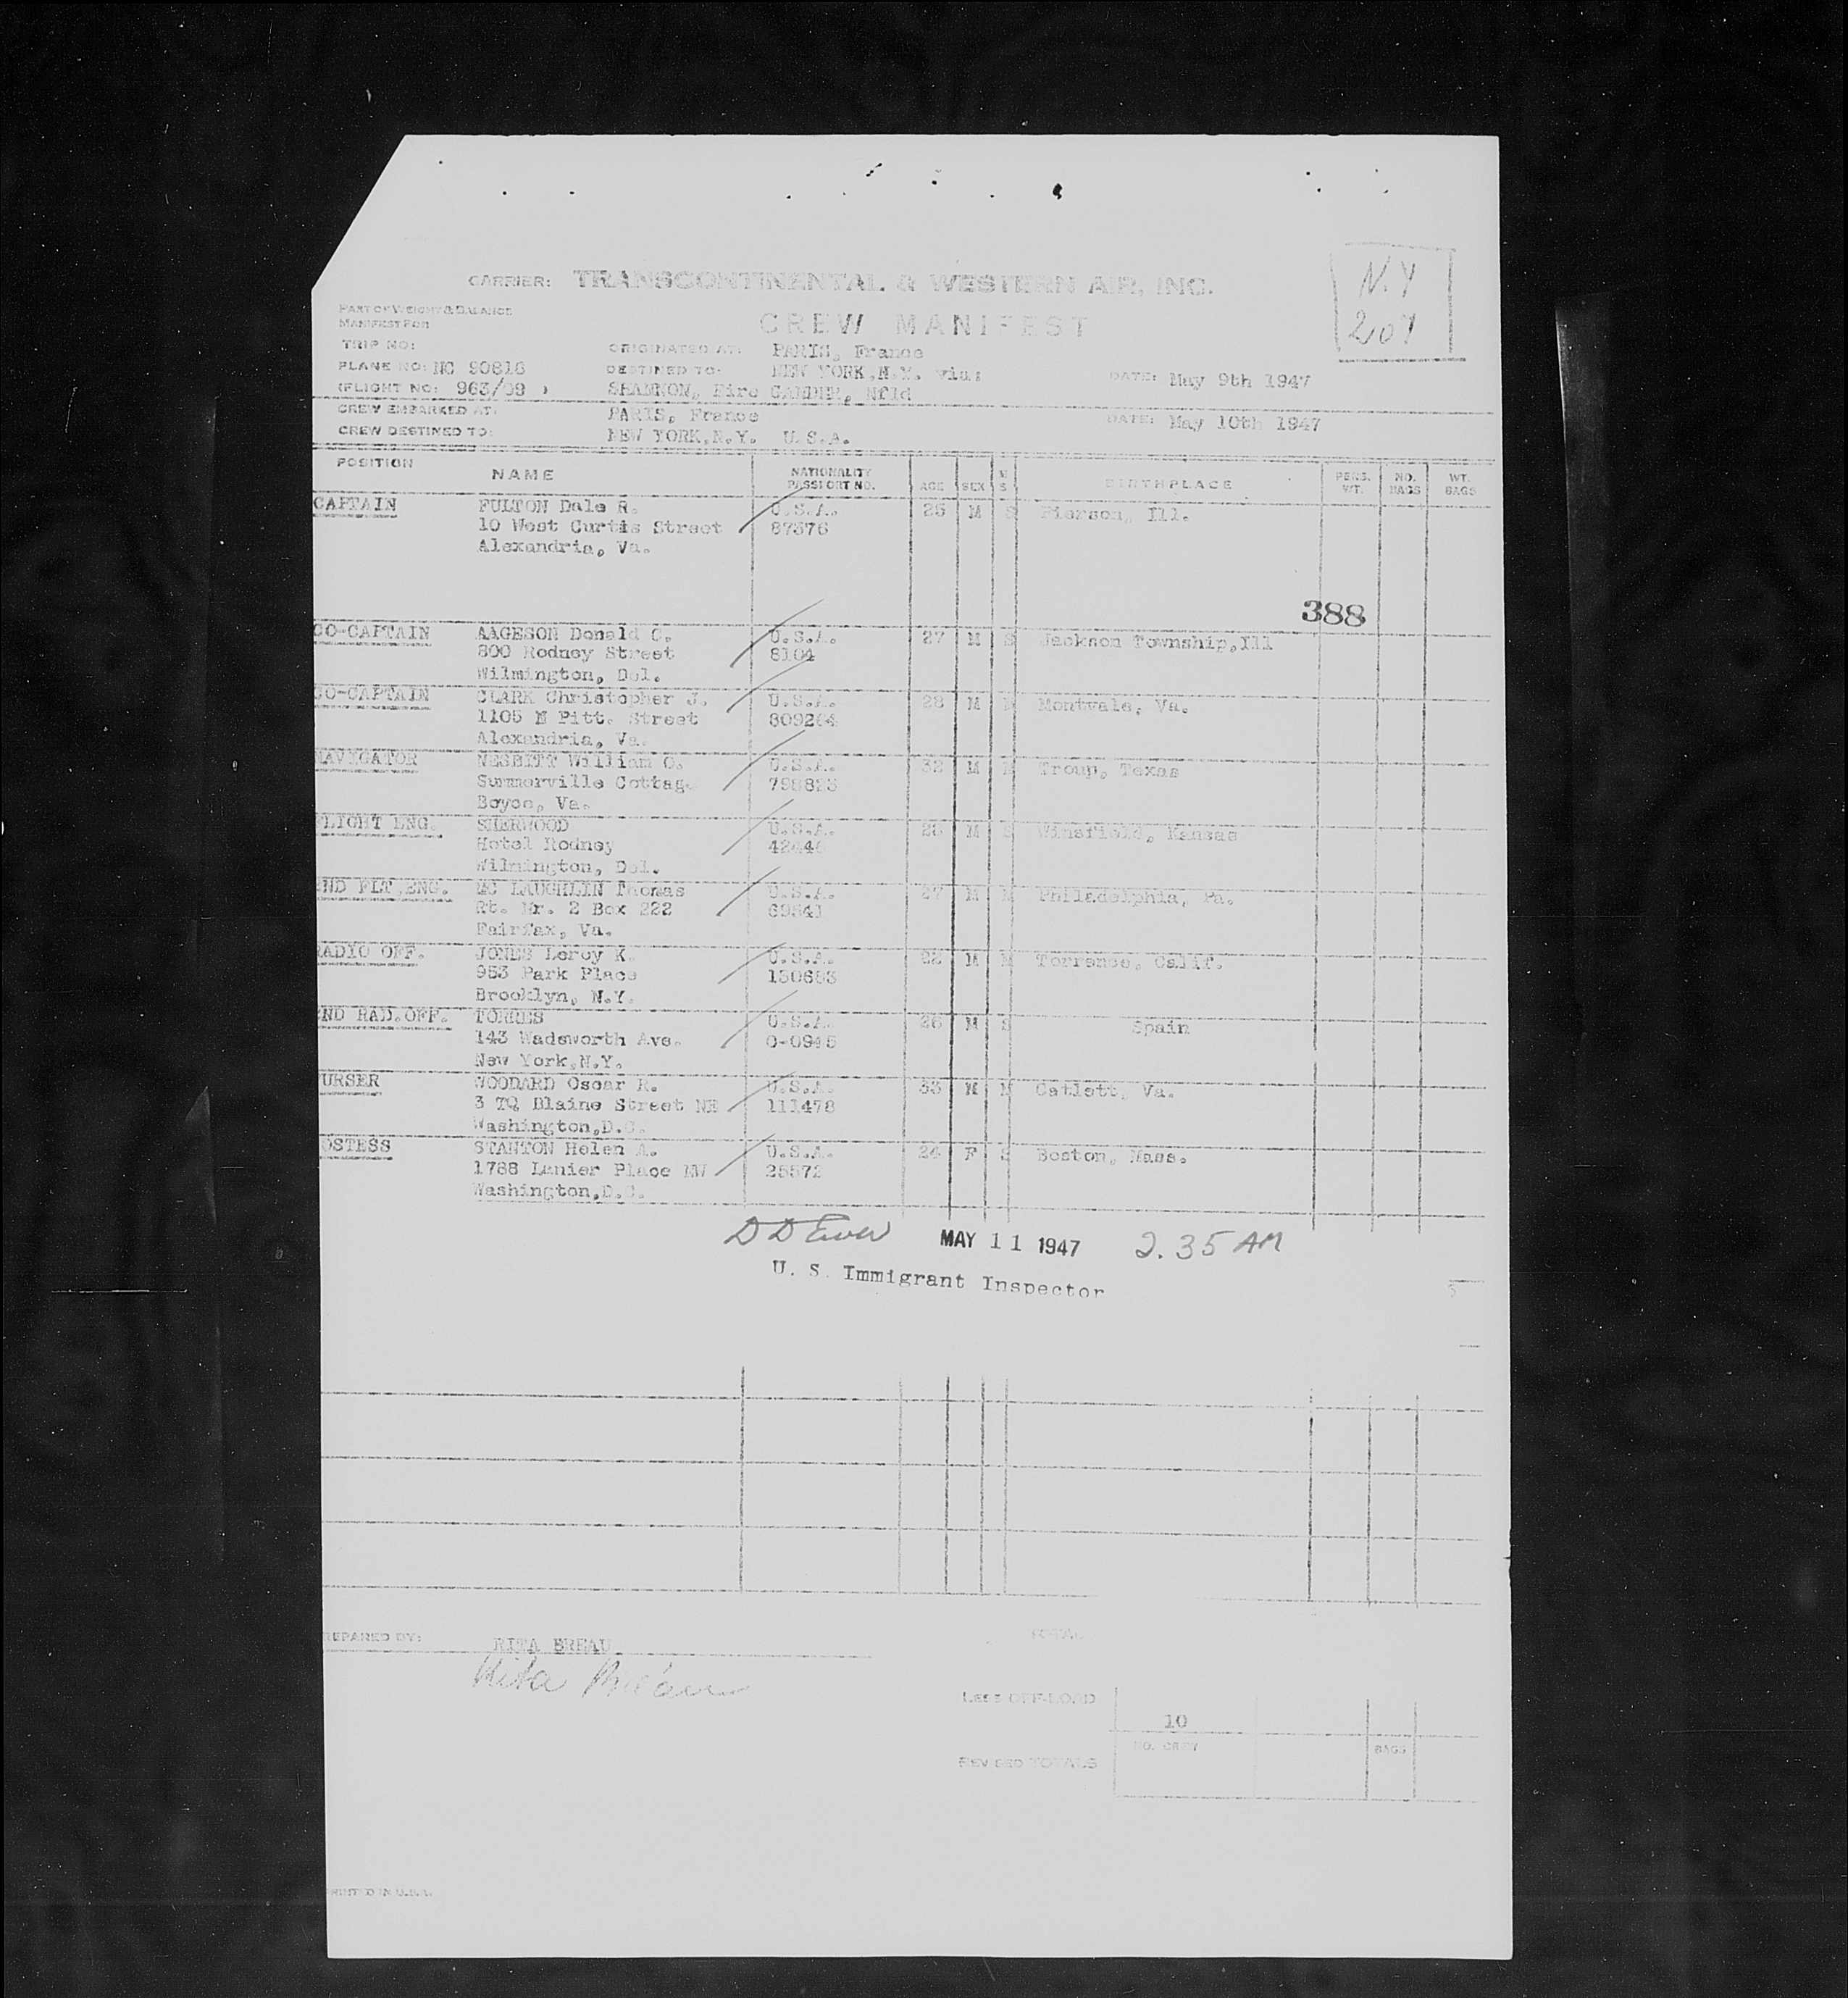 CARRIER: TRANSCONTINENTAL & WESTERN AIR, INC.
N.Y
207
PART OF WEIGHT & BALANCE
MANIFEST FOR
CREW MANIFEST
TRIP NO: ORIGINATED AT: PARIS, France
PLANE NO: NC 90816 DESTINED TO: NEW YORK, N.Y. via: DATE: May 9th 1947
(FLIGHT NO: 963/09 ) SHANNON, Eire GANDER, Nfld
CREW EMBARKED AT: PARIS, France DATE: May 10th 1947
CREW DESTINED TO: NEW YORK, N.Y. U.S.A.
POSITION NAME NATIONALITY PASSPORT NO. AGE SEX M S BIRTHPLACE PERS. WT. NO. BAGS WT. BAGS
CAPTAIN FULTON Dale R. U.S.A. 25 M S Pierson, Ill.
10 West Curtis Street 87376
Alexandria, Va.
388
CO-CAPTAIN AAGESON Donald C. U.S.A. 27 M S Jackson Township, Ill
800 Rodney Street 8104
Wilmington, Del.
CO-CAPTAIN CLARK Christopher J. U.S.A. 28 M M Montvale, Va.
1105 N Pitt. Street 809264
Alexandria, Va.
NAVIGATOR NESBITT William O. U.S.A. 32 M M Troup, Texas
Summerville Cottage
Boyce, Va.
FLIGHT ENG. SHERWOOD U.S.A. 28 M S Winsfield, Kansas
Hotel Rodney
Wilmington, Del.
ND FLT.ENG. MC LAUGHLIN Thomas U.S.A. 27 M M Philadelphia, Pa.
Rt. Nr. 2 Box 222 69541
Fairfax, Va.
RADIO OFF. JONES Leroy K. U.S.A. 28 M M Torrence, Calif.
953 Park Place 130683
Brooklyn, N.Y.
ND RAD.OFF. TORRES U.S.A. 26 M S Spain
143 Wadsworth Ave. 0-0945
New York, N.Y.
URSER WOODARD Oscar R. U.S.A. 33 M M Catlett, Va.
3 TQ Blaine Street NE 111478
Washington, D.C.
OSTESS STANTON Helen A. U.S.A. 24 F S Boston, Mass.
1788 Lanier Place NW 25572
Washington, D.C.
MAY 11 1947 2.35 AM
U. S. Immigrant Inspector
REPARED BY: RITA BREAU TOTAL
Less OFF-LOAD
10
NO. CREW BAGS
REVISED TOTALS
PRINTED IN U.S.A.